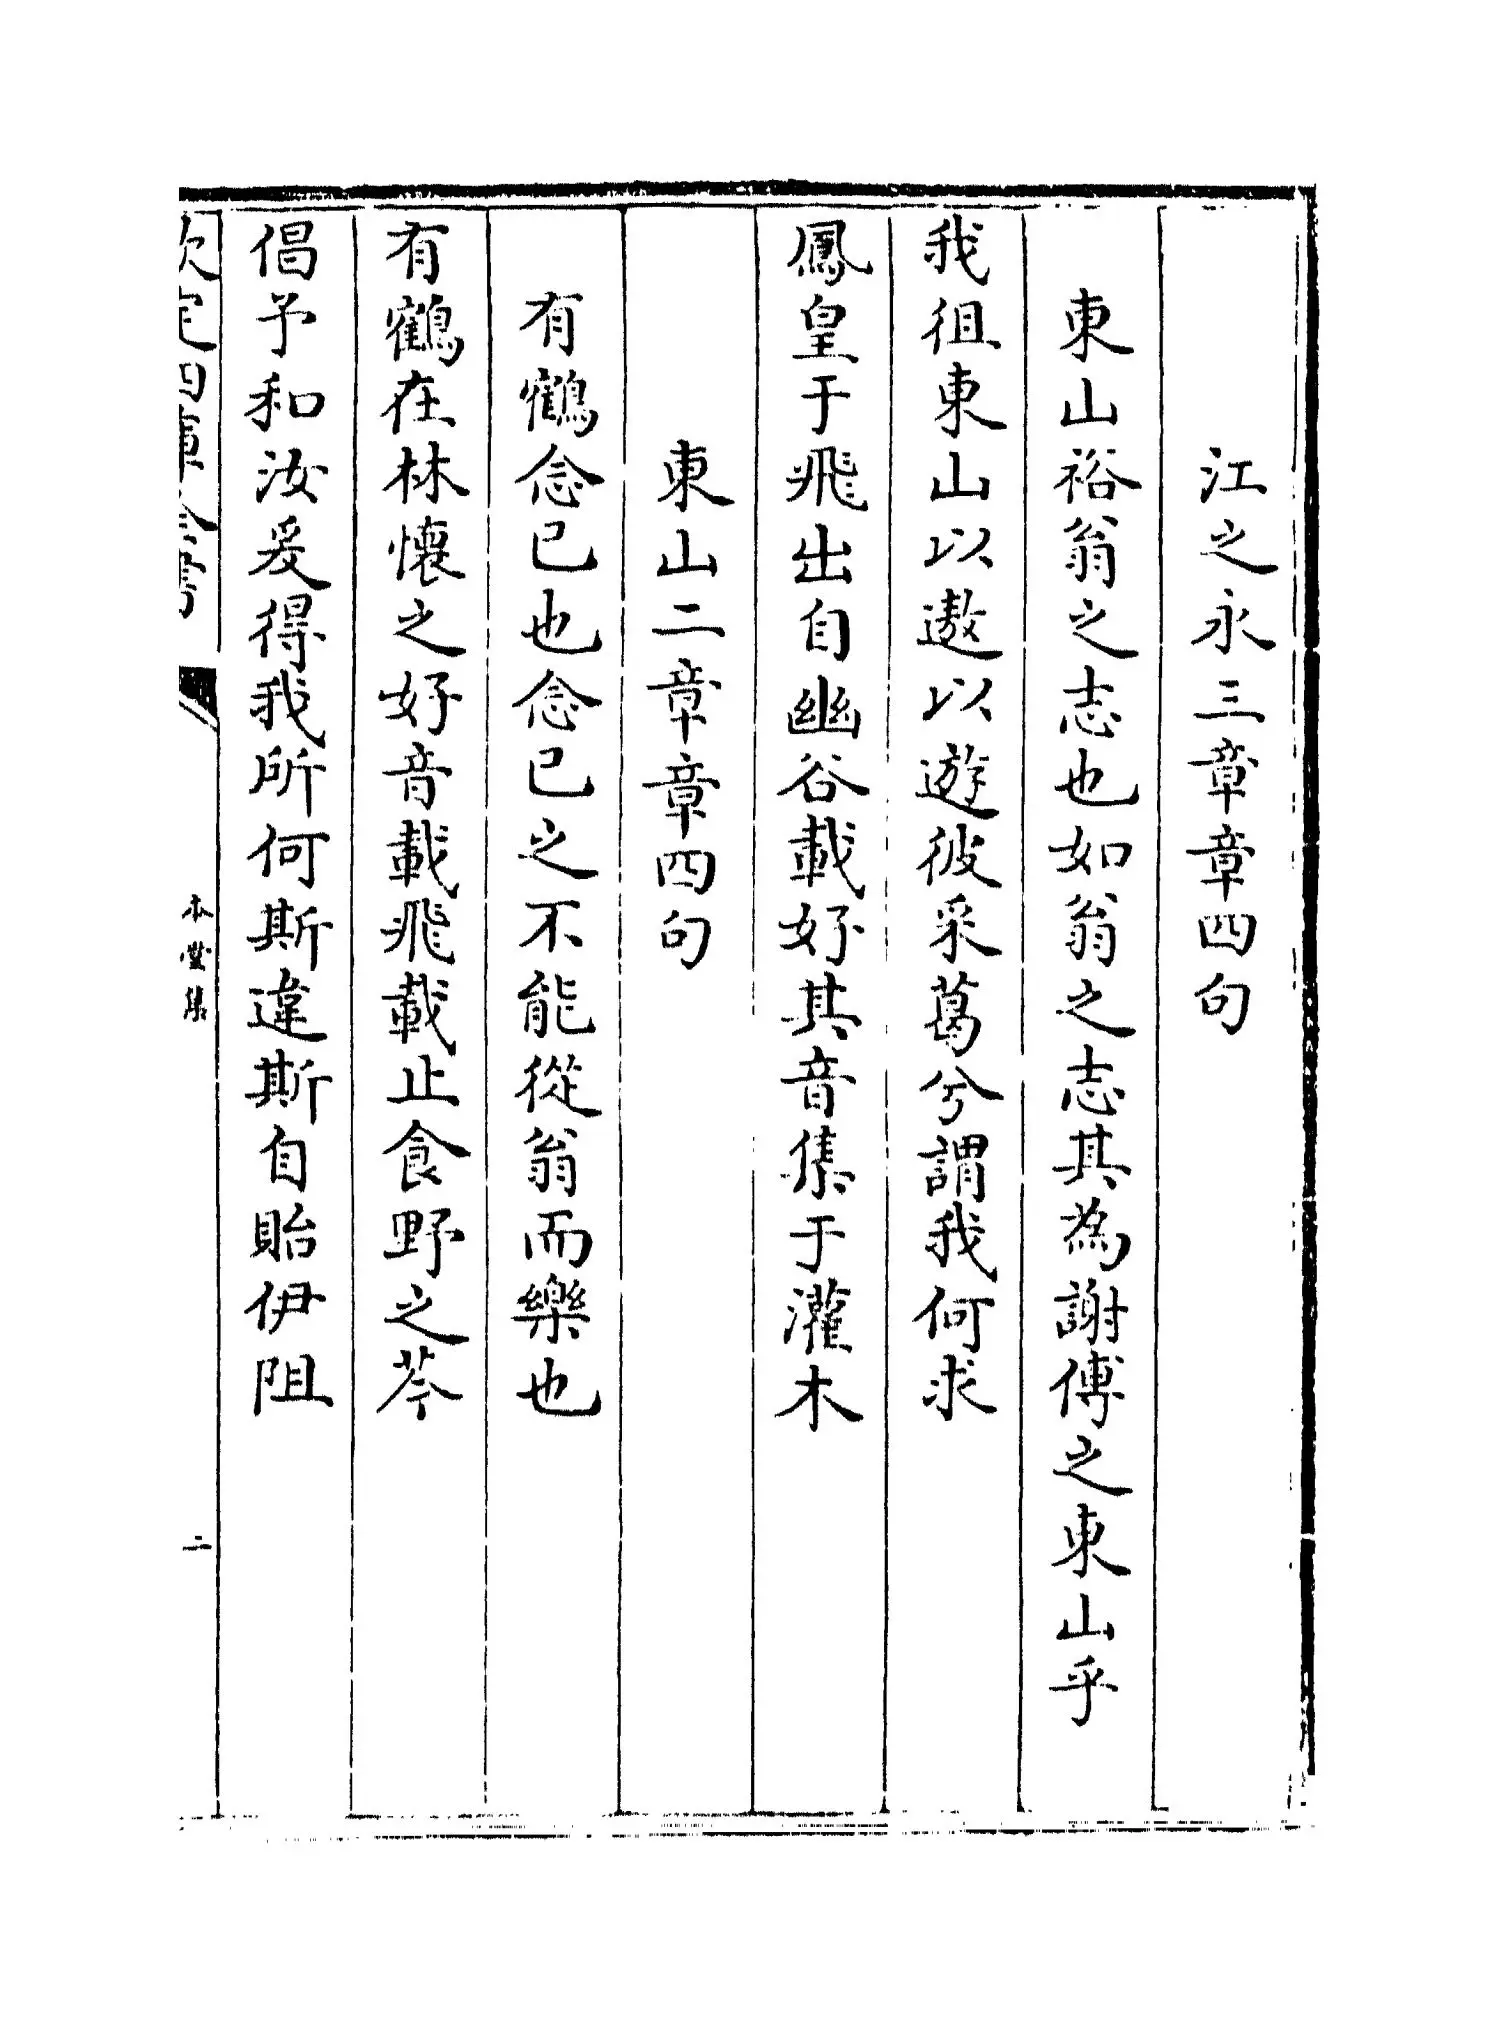 江之永三章章四句
東山裕翁之志也如翁之志其為謝傅之東山乎
我徂東山以遨以遊彼采葛兮謂我何求
鳳皇于飛出自幽谷載好其音集于灌木
東山二章章四句
有鶴念已也念已之不能從翁而樂也
有鶴在林懷之好音載飛載止食野之芩
倡予和汝爰得我所何斯違斯自貽伊阻
欽定四庫全書
本堂集
二